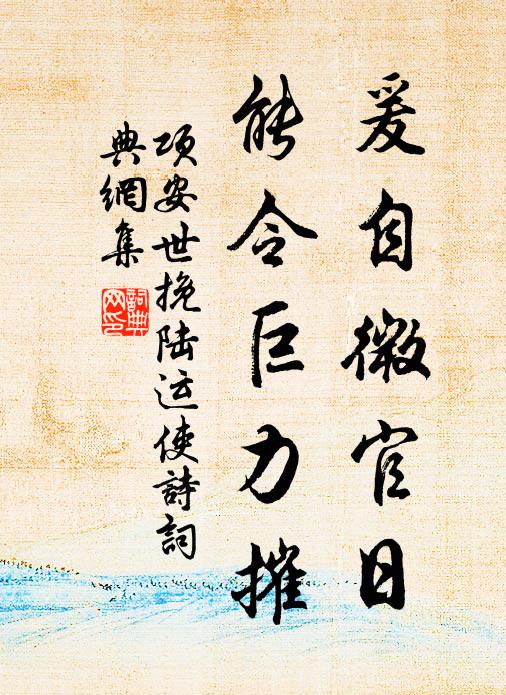 爰自微官日
能令巨力摧
項安世挽陆运使詩詞
典網集
詞典
网印